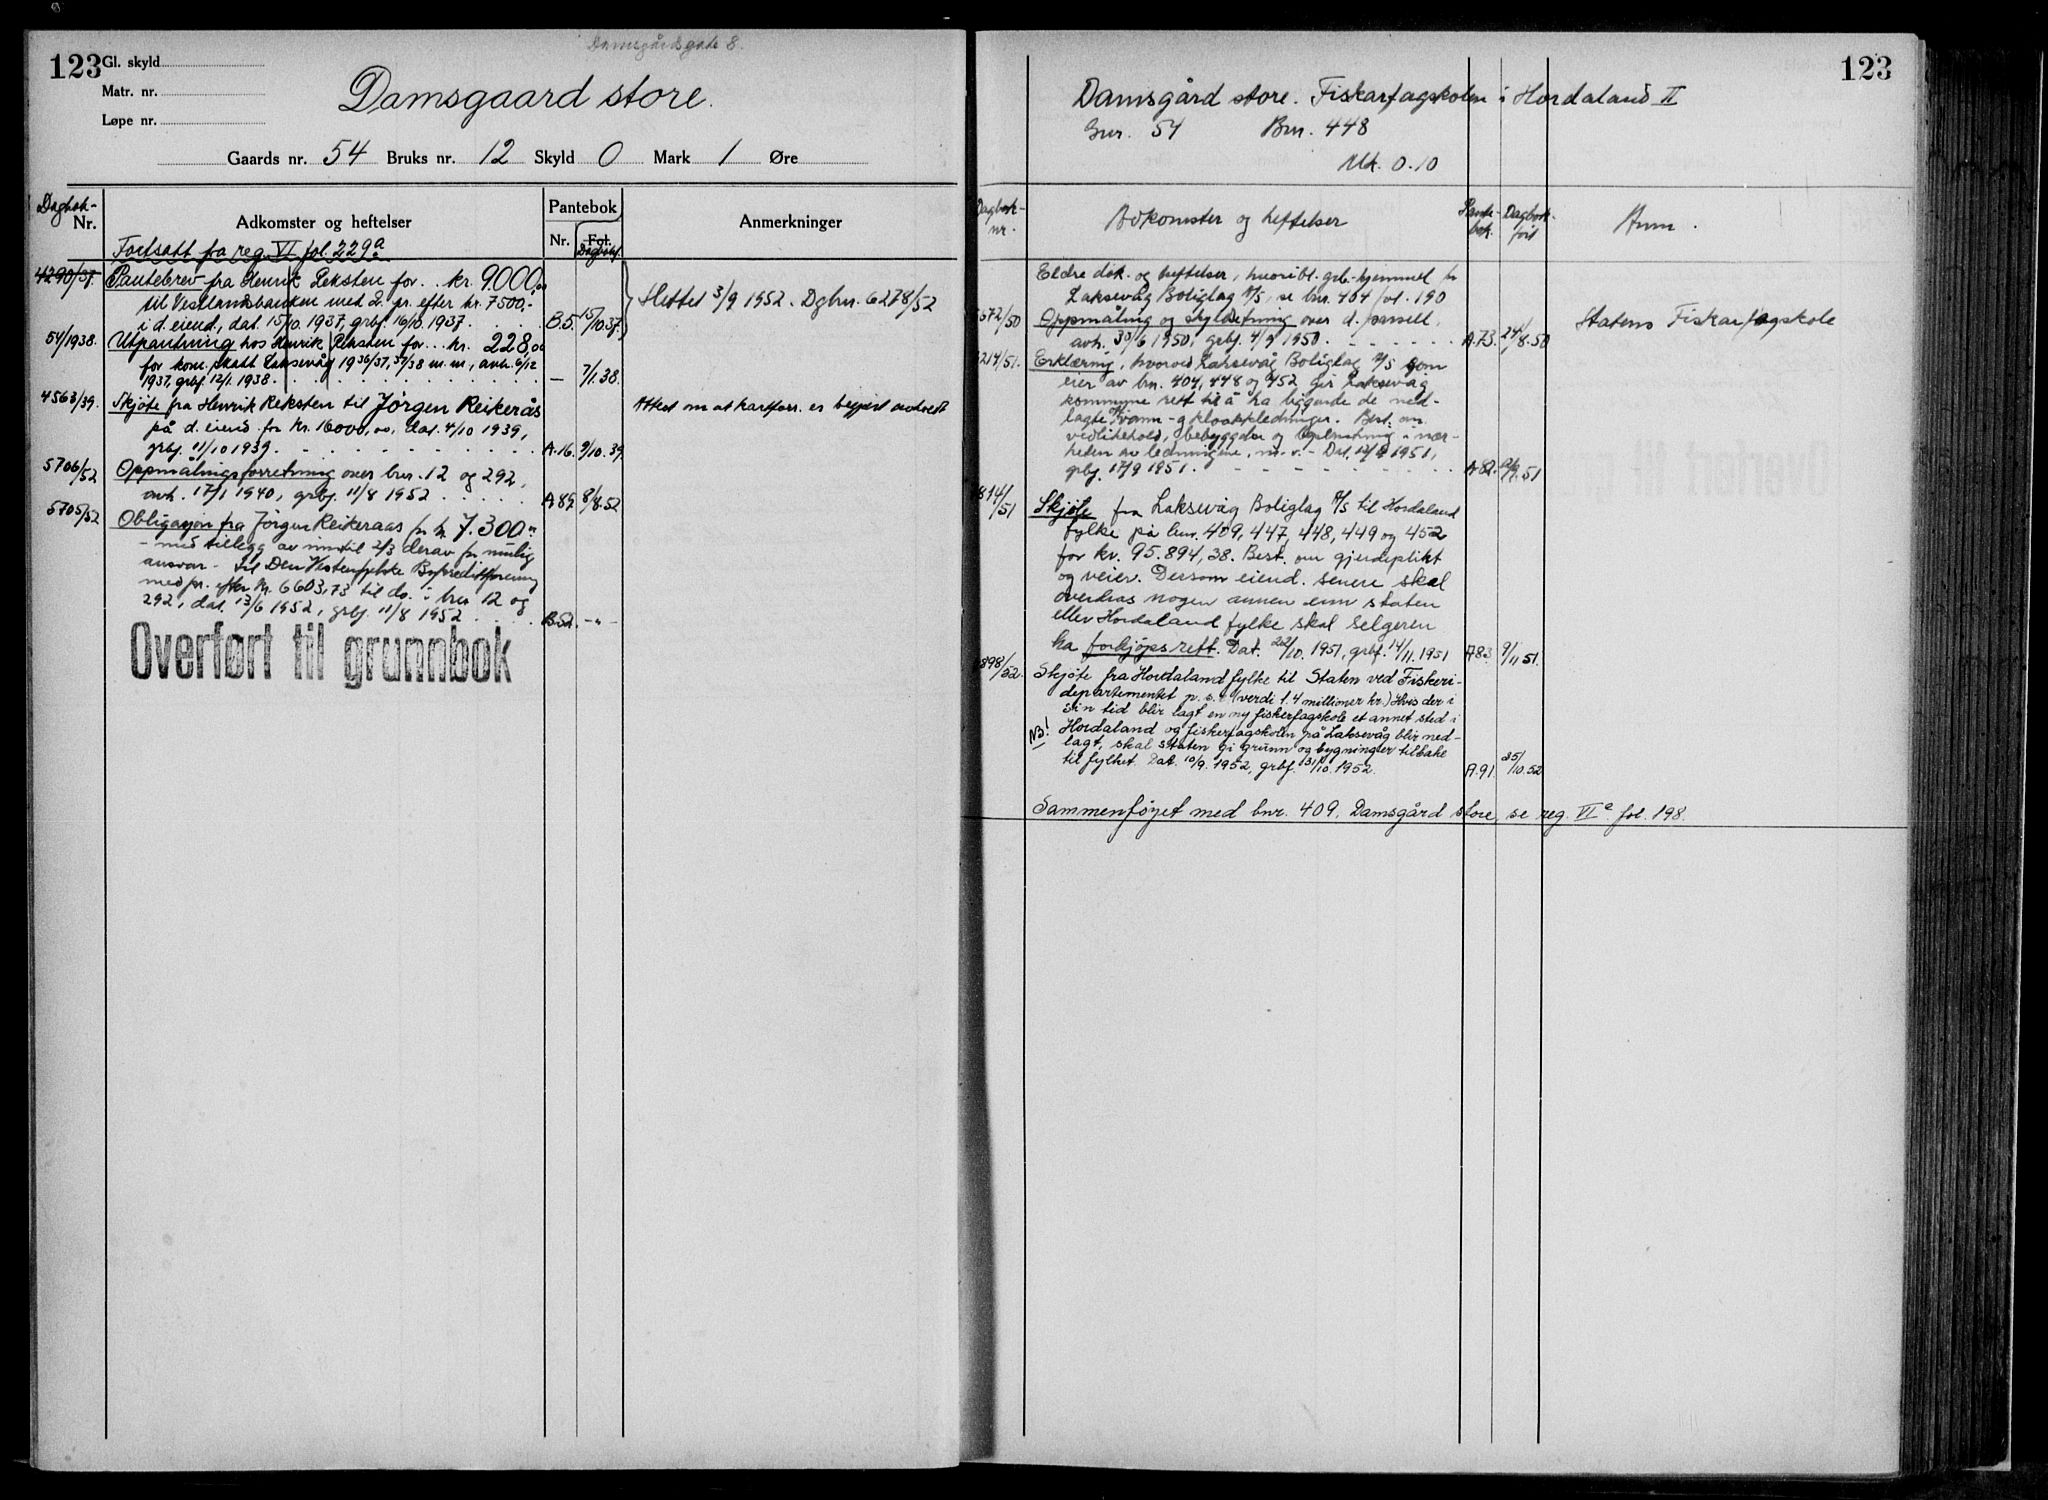 Damsgårdsgate 8.
123 Gl. skyld
Matr. nr.
Løpe nr.
Damsgaard store.
Gaards nr. 54 Bruks nr. 12 Skyld 0 Mark 1 Øre
Dagbok-
Nr.
Adkomster og heftelser
Pantebok
Nr. Fol.
Dagbokf.
Anmerkninger
Fortsatt fra reg. VI fol. 229a
4290/37. Pantebrev fra Henrik Reksten for.. kr. 9000,00
til Vestlandsbanken med 2. pr. efter kr. 7500,-
i d. eiend., dat. 15/10. 1937, grbf. 16/10. 1937. B.5. 15/10.37.
Slettet 3/9 1952. Dgbnr. 6278/52
54/1938. Utpantning hos Henrik Reksten for... kr. 228,00
for kom. skatt Laksevåg 1936/37, 37/38 m.m., avh. 6/12
1937, grbf. 12/1. 1938. — 7/1.38.
4563/39. Skjøte fra Henrik Reksten til Jörgen Reikerås
på d. eiend. for kr. 16000,00, dat. 4/10 1939,
grbf. 11/10 1939. A.16. 9/10.39.
Attest om at kartforr. er begjært avholdt
5706/52 Oppmålingsforretning over bnr. 12 og 292,
avh. 17/1 1940, grbf. 11/8 1952. A.87. 8/8.52
5705/52 Obligasjon fra Jörgen Reikeraas for kr. 7.300,-
- med tillegg av inntil 2/3 derav for mulig
ansvar - til Den Vestenfjelske Bykreditforening
med pr. efter kr. 6603,73 til do. i bnr. 12 og
292, dat. 13/6 1952, grbf. 11/8 1952. B.52. -"-
Overført til grunnbok
123
Damsgård store. Fiskarfagskolen i Hordaland II
Gnr. 54 Bnr. 448
Mk. 0.10
Dagbok-
nr.
Adkomster og heftelser
Pante-
bok.
Dagbok-
ført
Anm.
Eldre dok. og heftelser, hvoribl. grb.-hjemmel for
Laksevåg Boliglag A/S, se bnr. 404 fol. 190
572/50 Oppmåling og skyldsetning over d. parsell,
avh. 30/6 1950, grbf. 4/9 1950. A.73. 24/8.50
Statens Fiskarfagskole
214/51. Erklæring, hvorved Laksevåg Boliglag A/S som
eier av bnr. 404, 448 og 452 gir Laksevåg
kommune rett til å ha liggende de ned-
lagte vann- og kloakkledninger. Best. om
vedlikehold, bebyggelse og i nær-
heten av ledningene, m.v. - Dat. 1951,
grbf. 17/9 1951. A.82. 51
814/51 Skjøte fra Laksevåg Boliglag A/S til Hordaland
fylke på bnr. 409, 447, 448, 449 og 452
for kr. 95.894,38. Best. om gjerdeplikt
og veier. Dersom eiend. senere skal
overdras nogen annen enn staten
eller Hordaland fylke skal selgeren
ha forkjøpsrett. Dat. 22/10. 1951, grbf. 14/11. 1951 A83. 9/11 51.
898/52. Skjøte fra Hordaland fylke til Staten ved Fiskeri-
departementet (verdi 1.4 millioner kr.) Hvis der i
sin tid blir lagt en ny fiskerfagskole et annet sted i
NB! Hordaland og fiskerfagskolen på Laksevåg blir ned-
lagt, skal staten gi grunn og bygninger tilbake
til fylket. Dat. 10/9. 1952, grbf. 31/10. 1952. A.91. 25/10.52
Sammenføyet med bnr. 409, Damsgård store, se reg. VIa fol. 198.